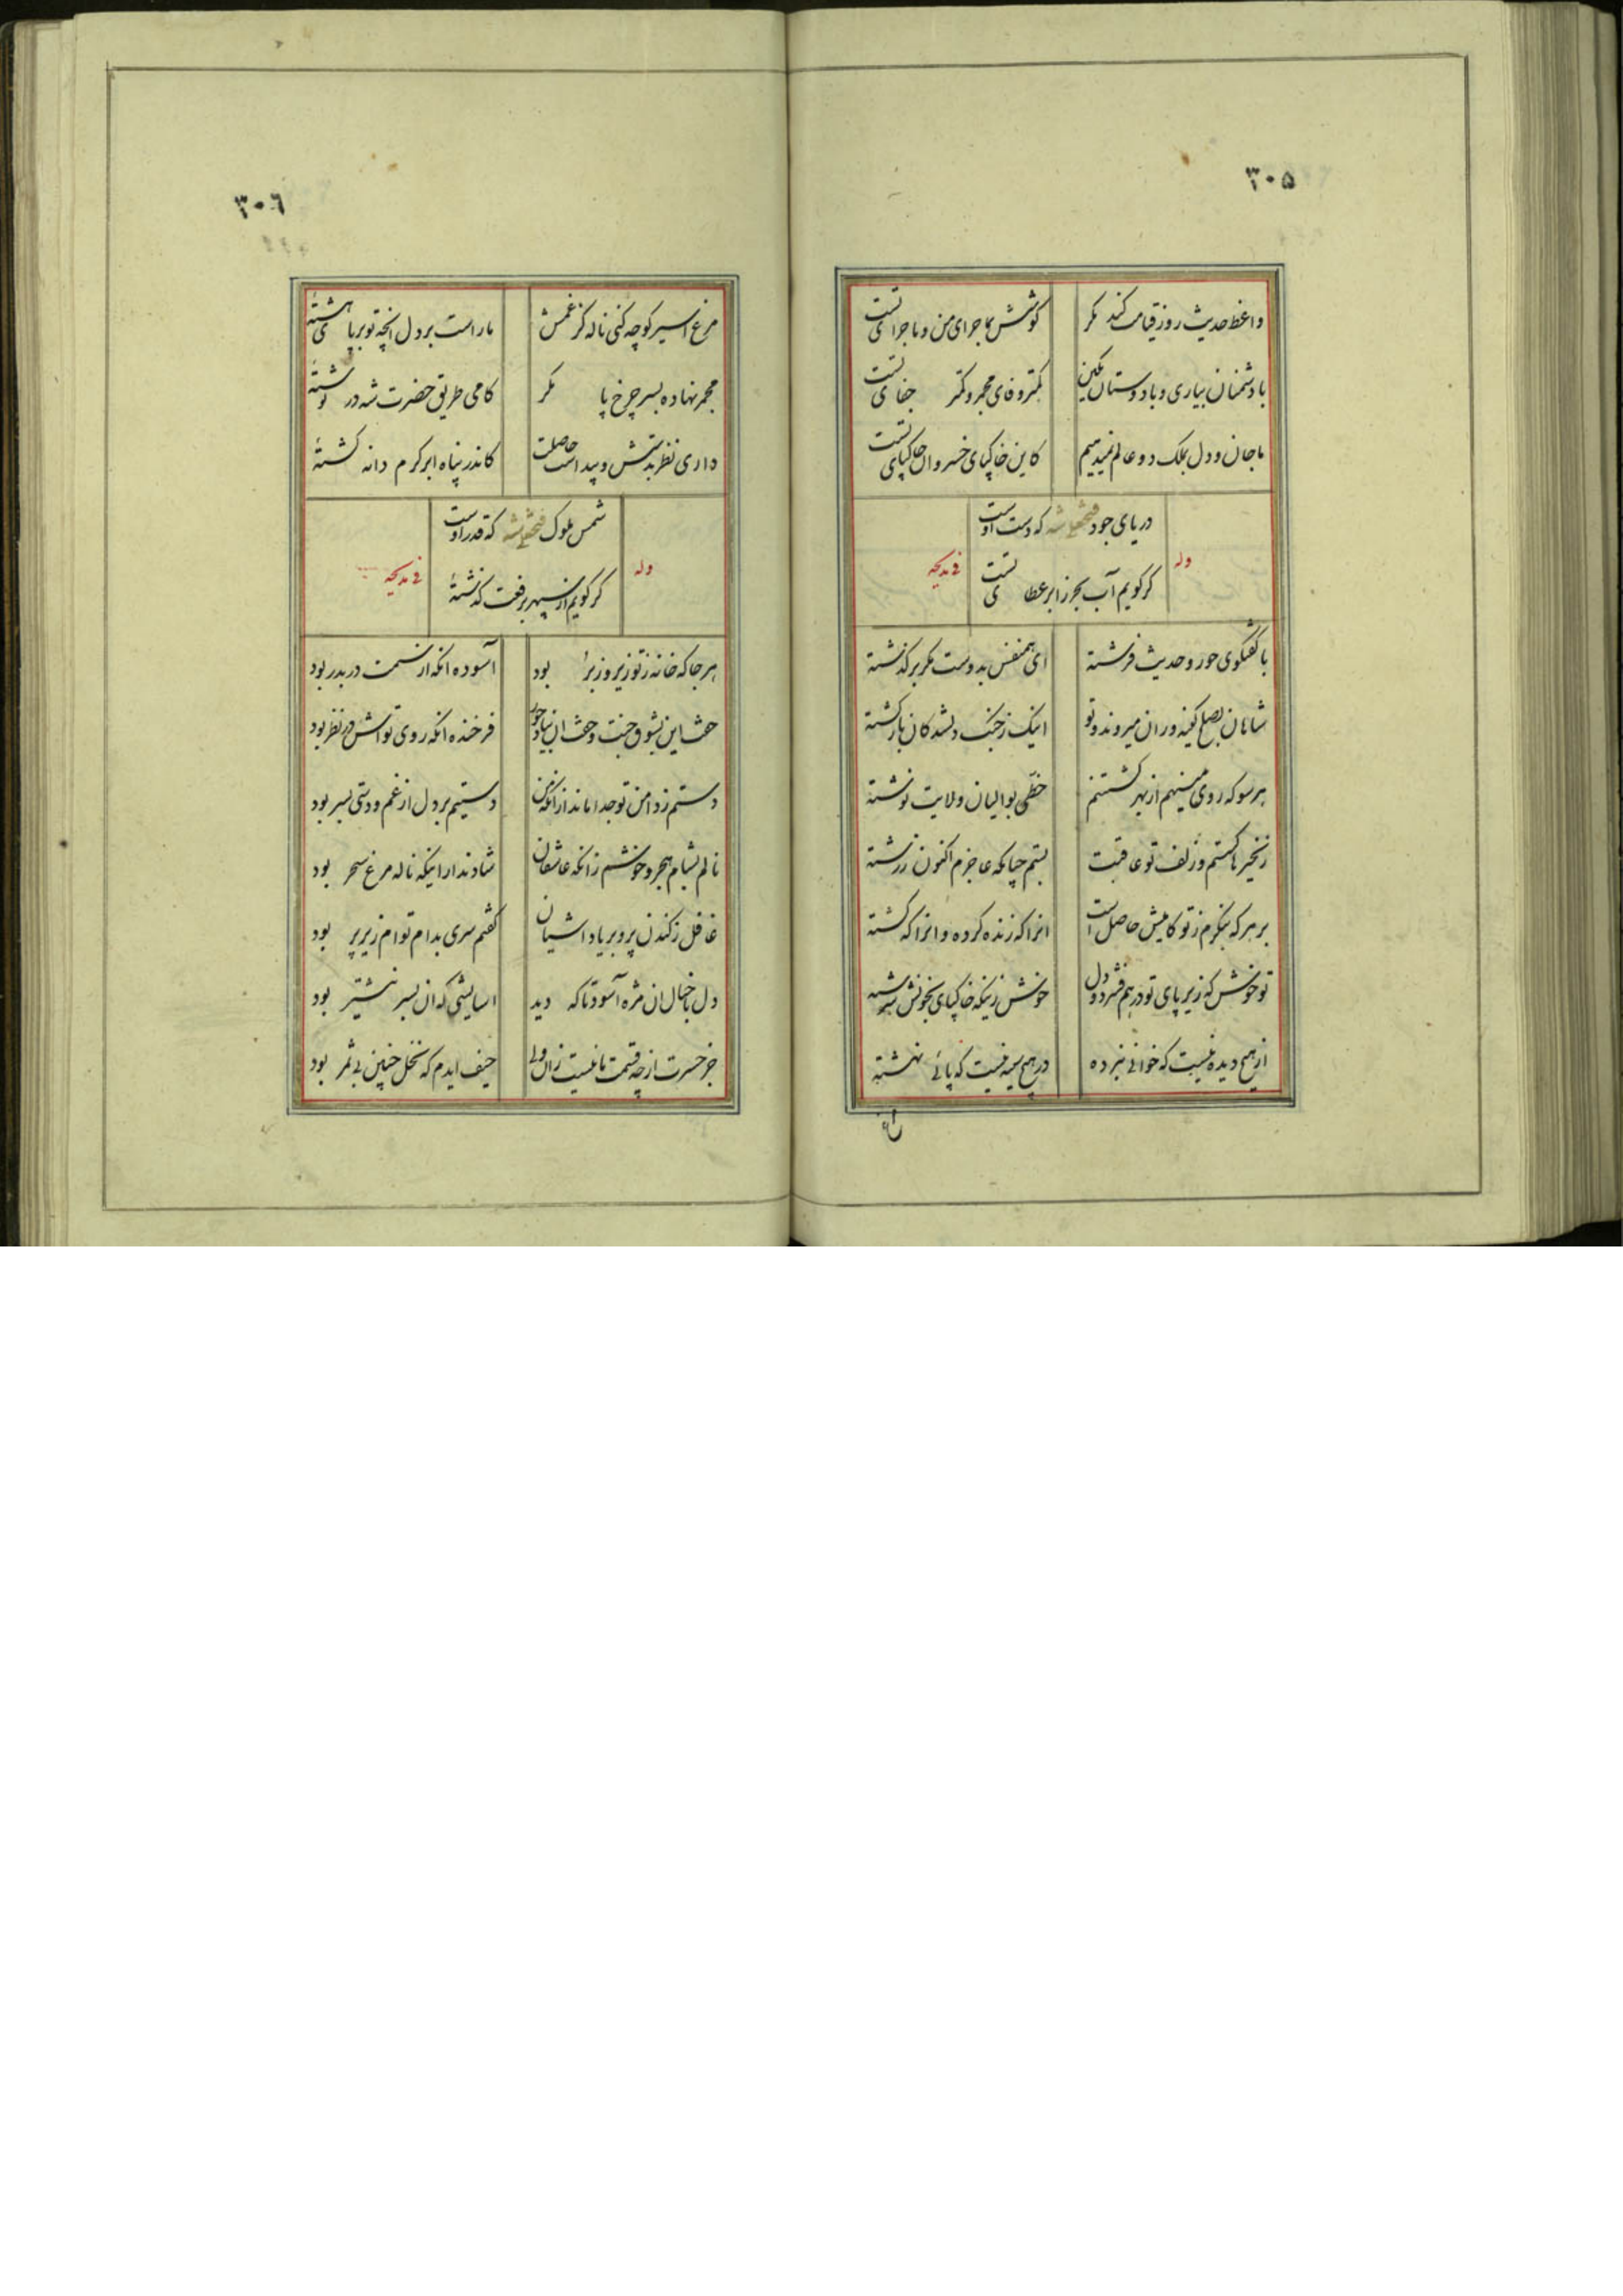 ۳۰۵
واعظ حدیث روز قیامت کند مگر
کوشش بماجرای من و ماجرای تست
با دشمنان بیاری و با دوستان بکین
کمتر وفای مجمر و کمتر جفای تست
ما جان و دل بملک دو عالم نمیدهیم
کاین خاکپای خسرو و ان خاکپای تست
وله
دریای جود فتحعلی شه که دست اوست
فی مدیحه
کر کویم آب بحر ز ابر عطای تست
با کفتکوی حور و حدیث فرشته
ای همنفس بدوست مکر بر کذشته
شاهان بصلح کینه وران میروند و تو
اینک ز جنک دلشدکان باز کشته
هر سو که روی مینهم از بهر کشتنم
خطی بوالیان ولایت نوشته
زنجیرها کسستم و زلف تو عاقبت
بستم چنانکه عاجزم اکنون ز رشته
بر هر که بنکرم ز تو کامیش حاصل است
انرا که زنده کرده و انرا که کشته
تو خوش که زیر پای تو در هم فشرد دل
خوش زینکه خاکپای بخونش سرشته
از هیچ دیده نیست که خوابی نبرده
در هیچ سینه نیست که پائی نهشته
۳۰۶
مرغ اسیر کو چه کنی ناله کز غمش
ما راست بر دل انچه تو بر پای هشته
مجمر نهاده بسر چرخ پا مکر
کامی طریق حضرت شه در نوشته
داری نظر بدستش و پیداست حاصلت
کاندر پناه ابر کرم دانه کشته
وله
شمس ملوک فتحعلی شه که قدر اوست
فی مدیحه
کر کویم از سپهر برفعت کذشته
هر جا که خانه ز تو زیر و زبر بود
آسوده انکه از ستمت در بدر بود
فرخنده انکه روی تواش در نظر بود
دستم ز دامن تو جدا ماند از انکه من
دستیم بر دل از غم و دستی بسر بود
نالم بشام هجر و خوشم زانکه عاشقان
شادند از اینکه ناله مرغ سحر بود
غافل ز کندن پر و بر یاد اشیان
کفتم سری بدام توام زیر پر بود
دل با خیال ان مژه آسود تا که دید
اسایشی که ان بسر نیشتر بود
جز حسرت از چه قسمت ما نیست زان ولی
حیف ایدم که نخل چنین بی ثمر بود